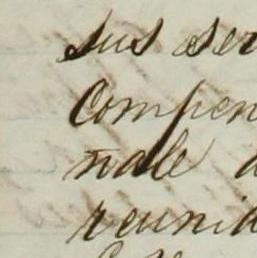 sus ser
Compen
ñale a
reunid